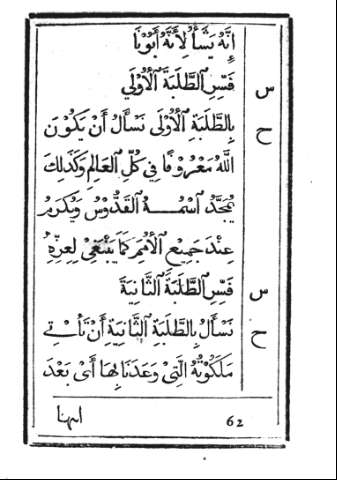 إِنَّهُ يَشَأُ لِأَنَّهُ أَبُونَا
س فَسِّرِ ٱلطَّلْبَةَ ٱلْأُوْلَي
ح بِالطَّلَبَةِ ٱلْأُوْلَى نَسْأَلُ أَنْ يَكُوْنَ
ٱللَّهُ مَعْرُوْفًا فِي كُلِّ ٱلْعَالِمِ وَكَذٰلِكَ
يُمَجَّدُ ٱسْمُـــهُ ٱلْقُدُّوْسُ وَيُكَرَّمُ
عِنْدَ جَمِيْعِ ٱلْأُمَمِ كَمَا يَنْبَغِيْ لِعِزِّهِ
س فَسِّرِ ٱلطَّلْبَةَ ٱلثَّانِيَةَ
ح نَسْأَلُ بِالطَّلْبَةِ ٱلثَّانِيَةِ أَنْ تَأْتِيَ
مَلَكُوْتُهُ ٱلَّتِيْ وَعَدَنَا بِهَا أَيْ بَعْدَ
62